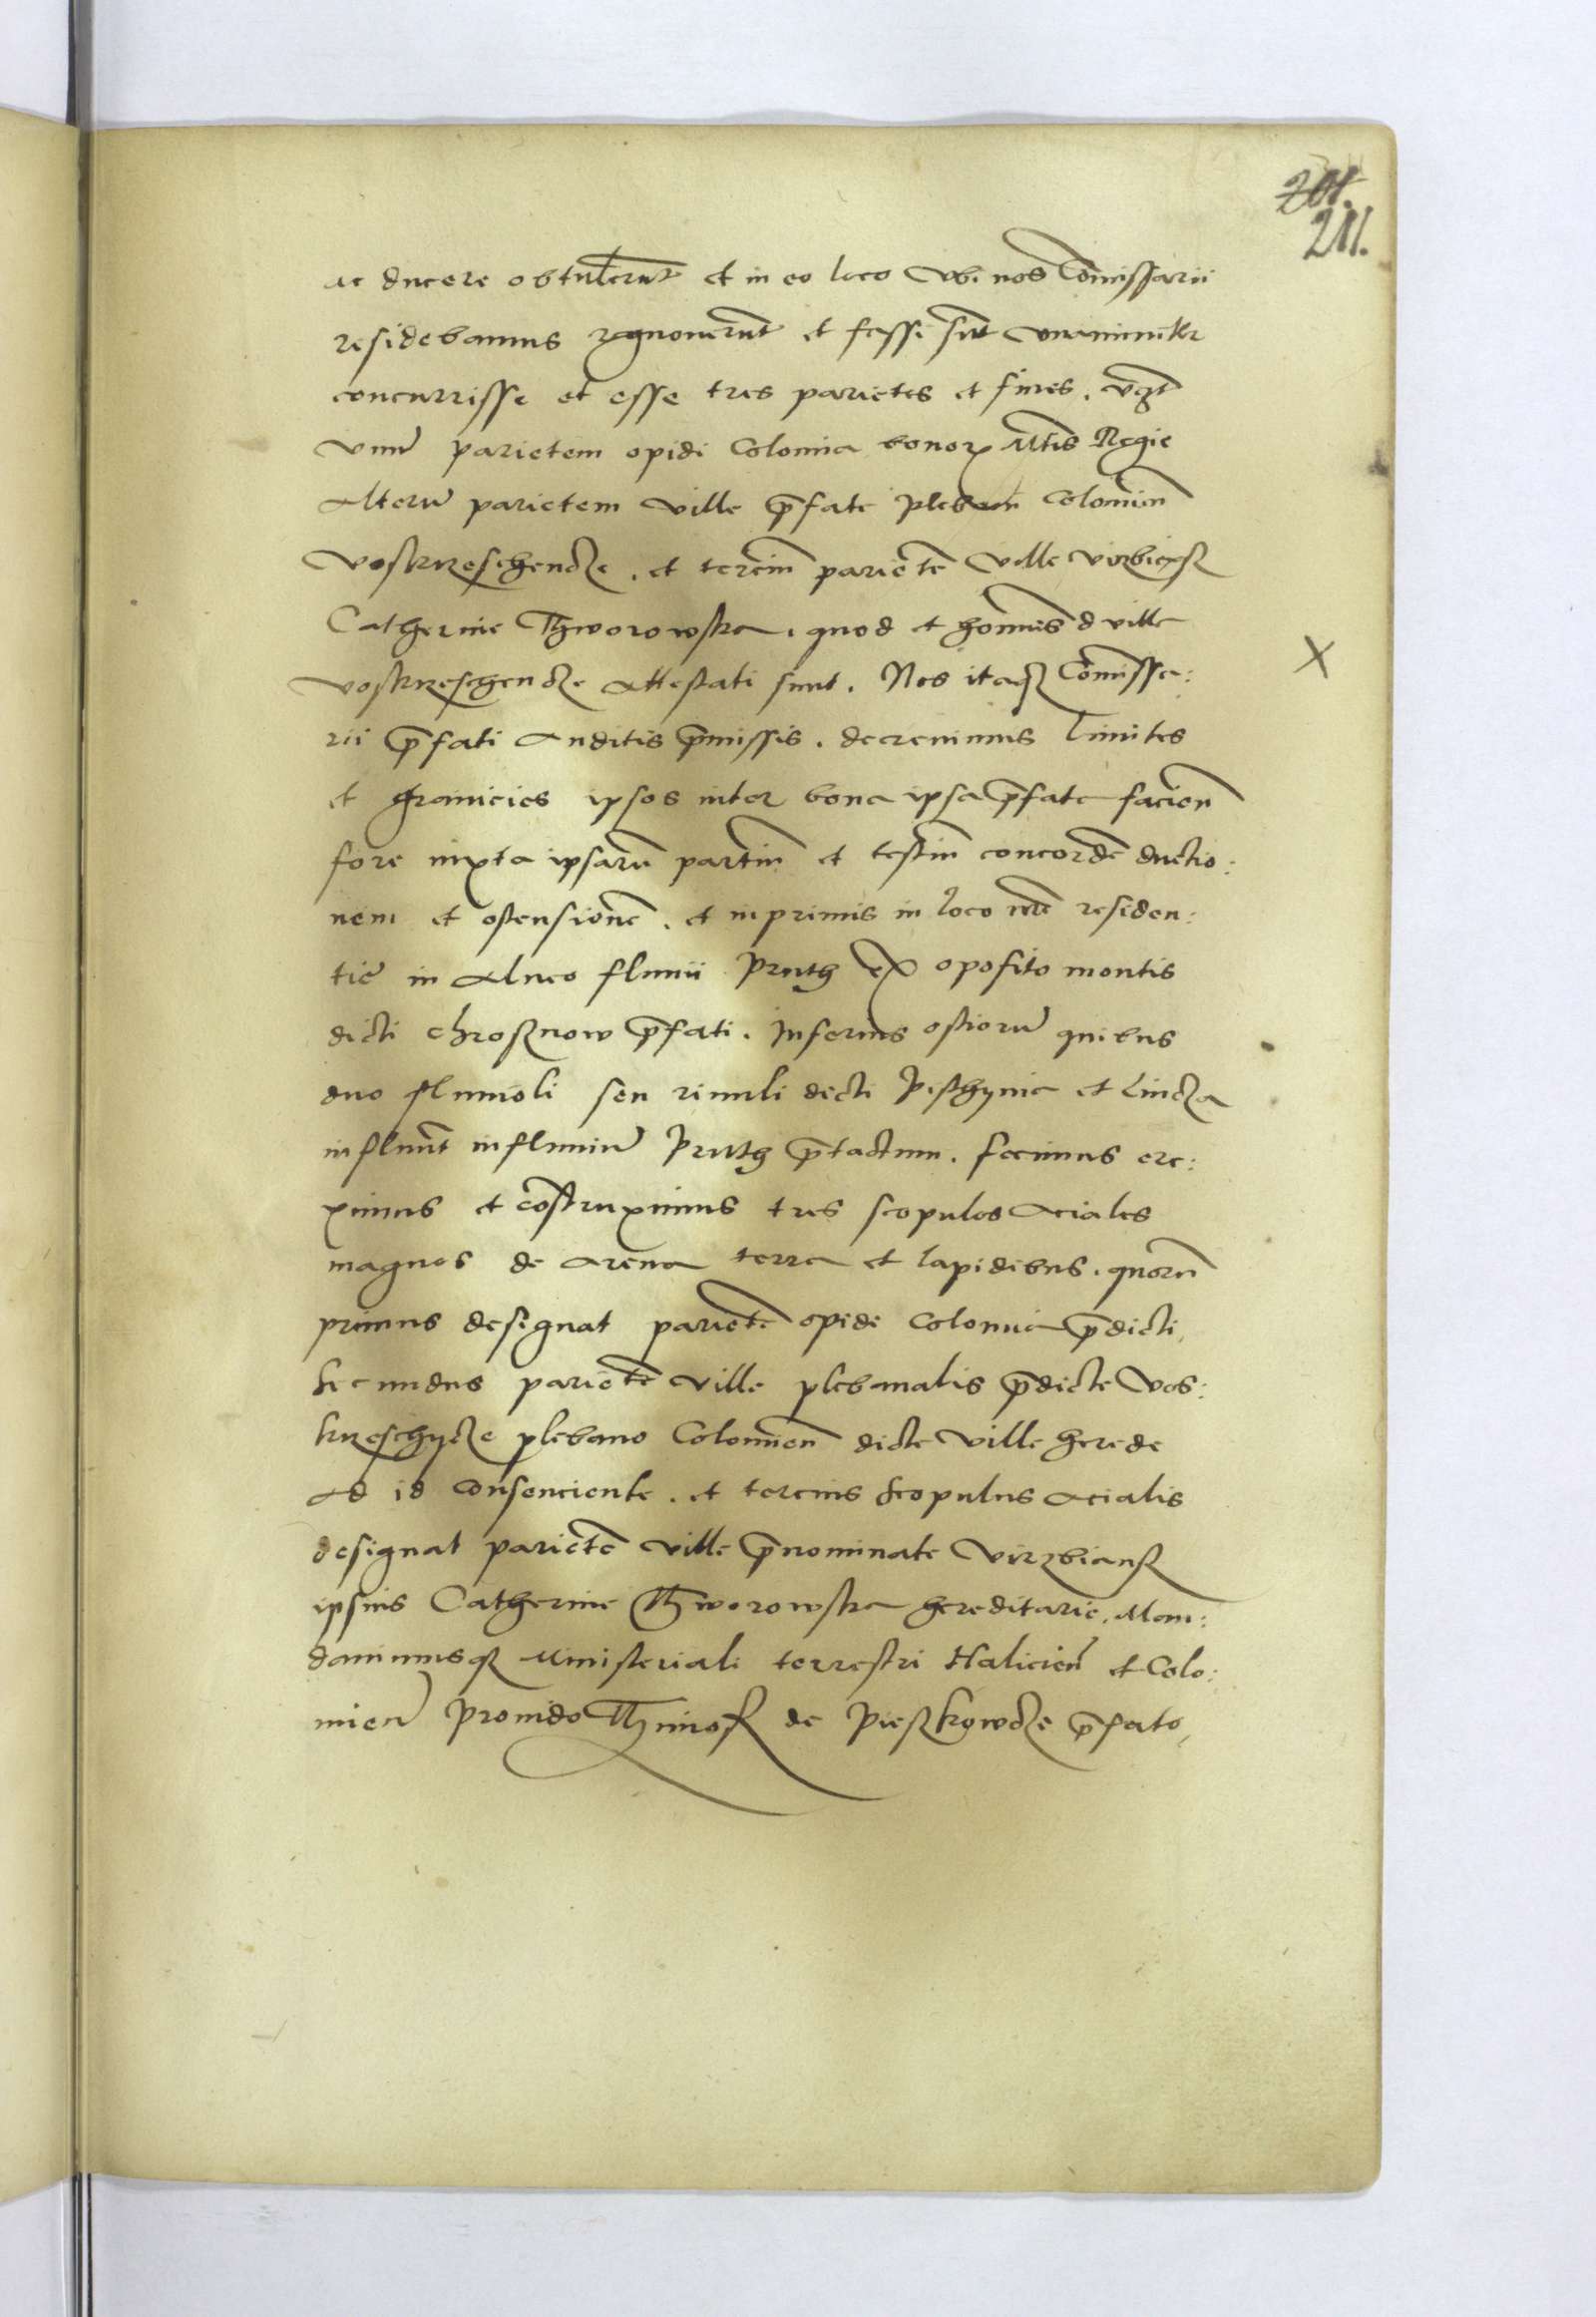 201.
211.
ac ducere obtulerūt et in eo loco vbi nos Com̄issarii
residebamus recognouerūt et fassi sūt vnanimiter
concurrisse et esse tres parietes et fines. vcꝫt
vnū parietem opidi Colomia bonorꝫ Mtis Regie
Alterū parietem ville p̄fate pleban Colomien̄
Voskrzeschencze. et terciū parietē ville virzbiąsz
Catherine Thworowska. quod et homines d ville
voskrzeschencze attestati sunt. Nos itaqꝫ Com̄issa:
rii p̄fati auditis p̄missis. decreuimus limites
et granicies ipsos inter bona ipsa p̄fata facien̄
fore iuxta ipsarū partiū et testiū concordē ductio:
nem et ostensionē. et inprimis in loco nr̄e residen:
tie in alueo fluuii Pruth ex oposito montis
dicti chrosznow p̄fati. Inferius ostiorū quibus
duo fluuioli seu riuuli dicti Pisthynia et Lincza
influūt in fluuiū Pruth p̄tactum. fecimus ere:
ximus et cōstruximus tres scopulos aciales
magnos de arena terra et lapidibus. quorū
primus designat parietē opidi Colomia p̄dicti,
secundus parietē ville plebanalis p̄dicte Vos:
krzeschycze plebano Colomien̄ dicte ville herede
ad id consenciente. et tercius scopulus acialis
designat parietē ville p̄nominate Virzbiansz
ipsius Catherine Thworowska hereditarie. Man:
dauimusqꝫ Ministeriali terrestri Halicien̄ et Colo:
mien̄ prouido Thimosz de Pieszkowcze p̄fato,
X